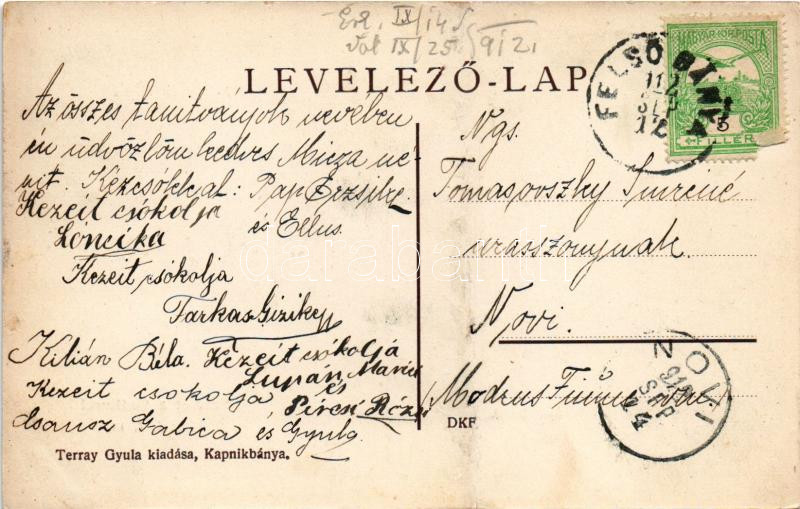 Érk. IX/14
Vál IX/25. 912.
LEVELEZŐ-LAP
MAGYAR KIR. POSTA
5
FILLÉR
FELSŐBÁNYA
912
SEP
12
Az összes tanitványok nevében
én üdvözlöm kedves Micza né-
nit. Kézcsókkal: Pap Erzsike
és Ellus.
Kezeit csókolja
Loncika
Kezeit csókolja
Farkas Gizike
Kilián Béla. Kezeit csókolja
Lupán Mariu
Kezeit csokolja és
Pircsi Róz
Gabica és Gyula
Ngs.
Tomasovszky Imréné
urasszonynak.
Novi.
Modrus Fiume
NOVI
912
SEP
14
DKF
Terray Gyula kiadása, Kapnikbánya.
darabanth